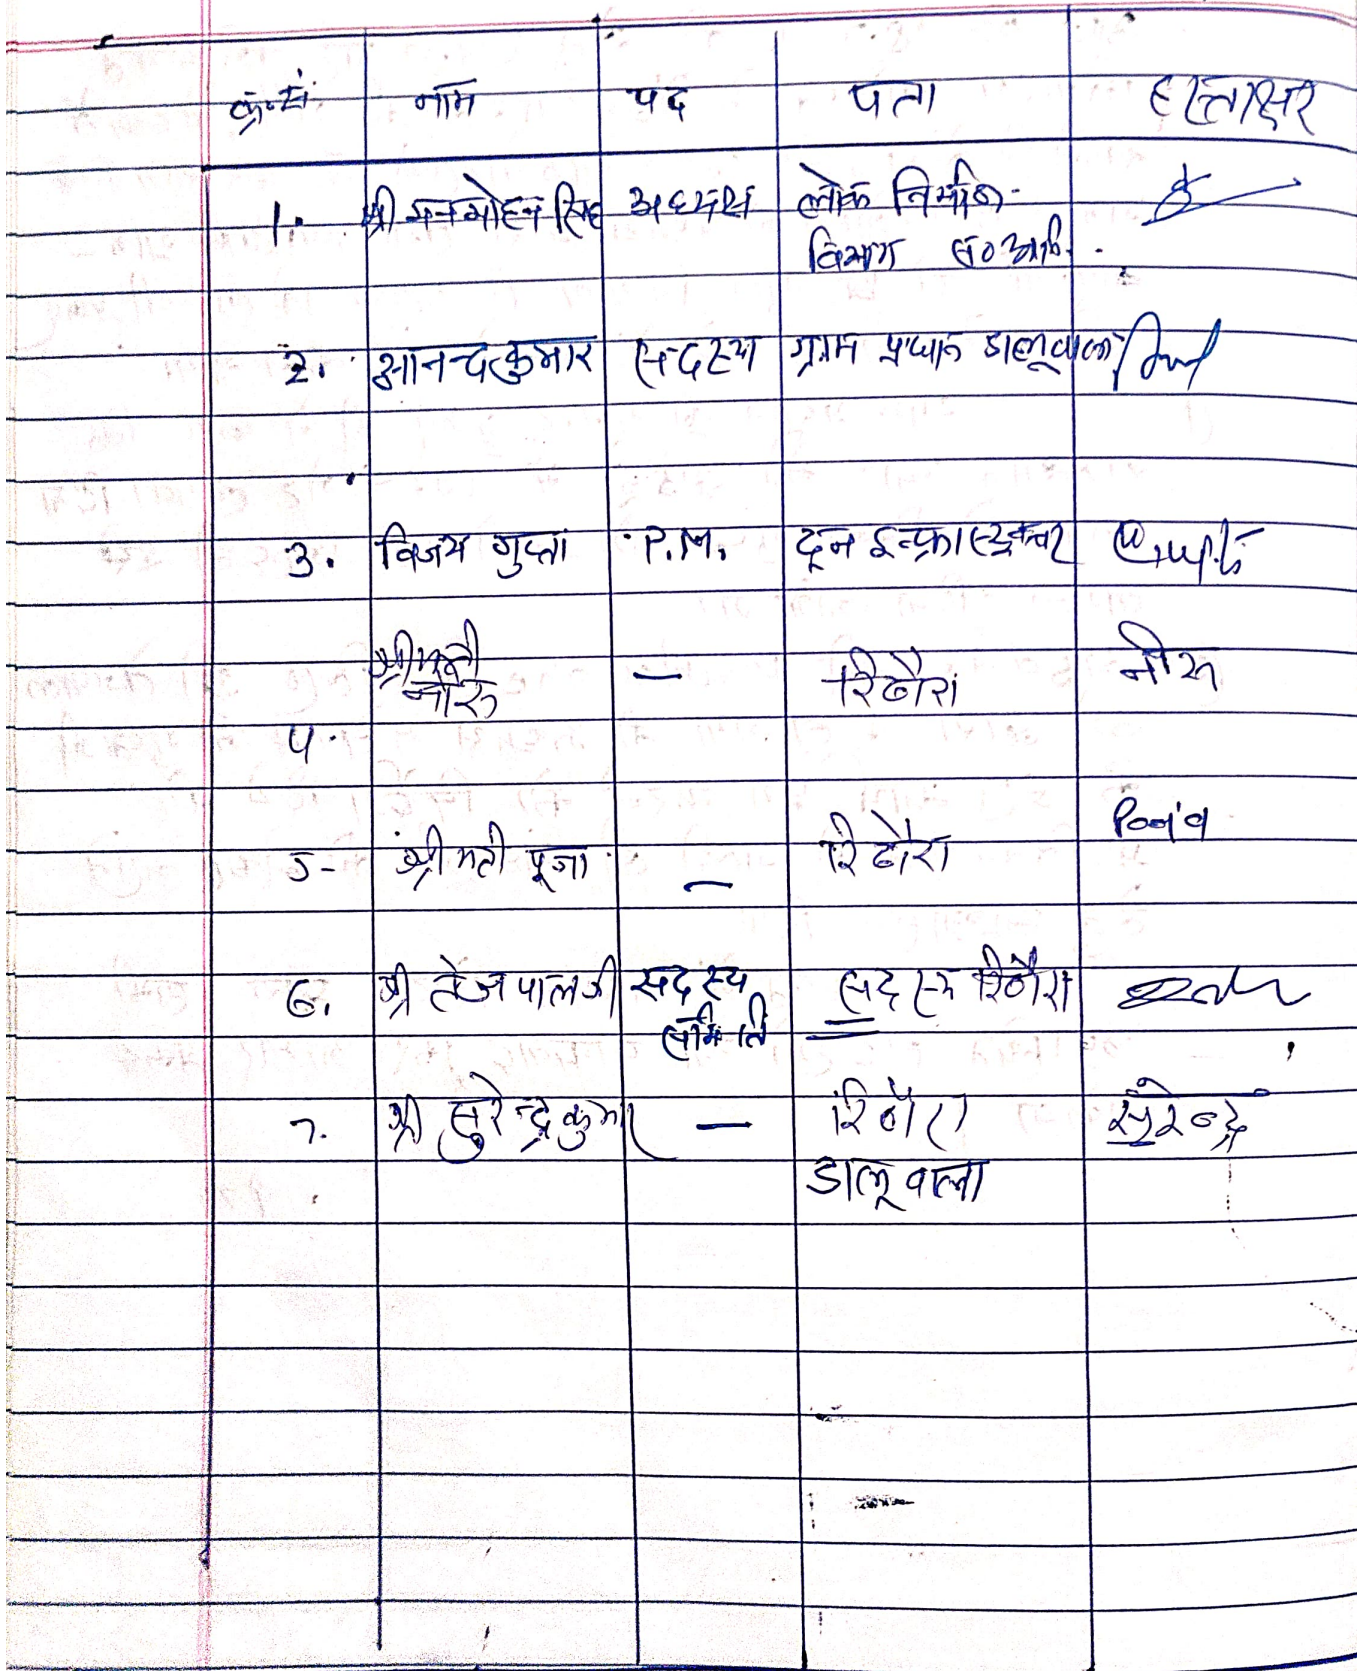 क्र०सं नाम पद पता हस्ताक्षर
1. श्री मनमोहन सिंह अध्यक्ष लोक निर्माण
विभाग स०अभि०
2. आनन्द कुमार सदस्य ग्राम प्रधान डालूवाला
3. विजय गुप्ता P.M. दून इन्फ्रास्ट्रक्चर
श्रीमती
नीरू — रिठौरा नीरू
4.
5- श्रीमती पूजा — रिठौरा
6. श्री तेजपाल जी सदस्य सदस्य रिठौरा
समिति
7. श्री सुरेन्द्र कुमार — रिठौरा सुरेन्द्र
डालूवाला